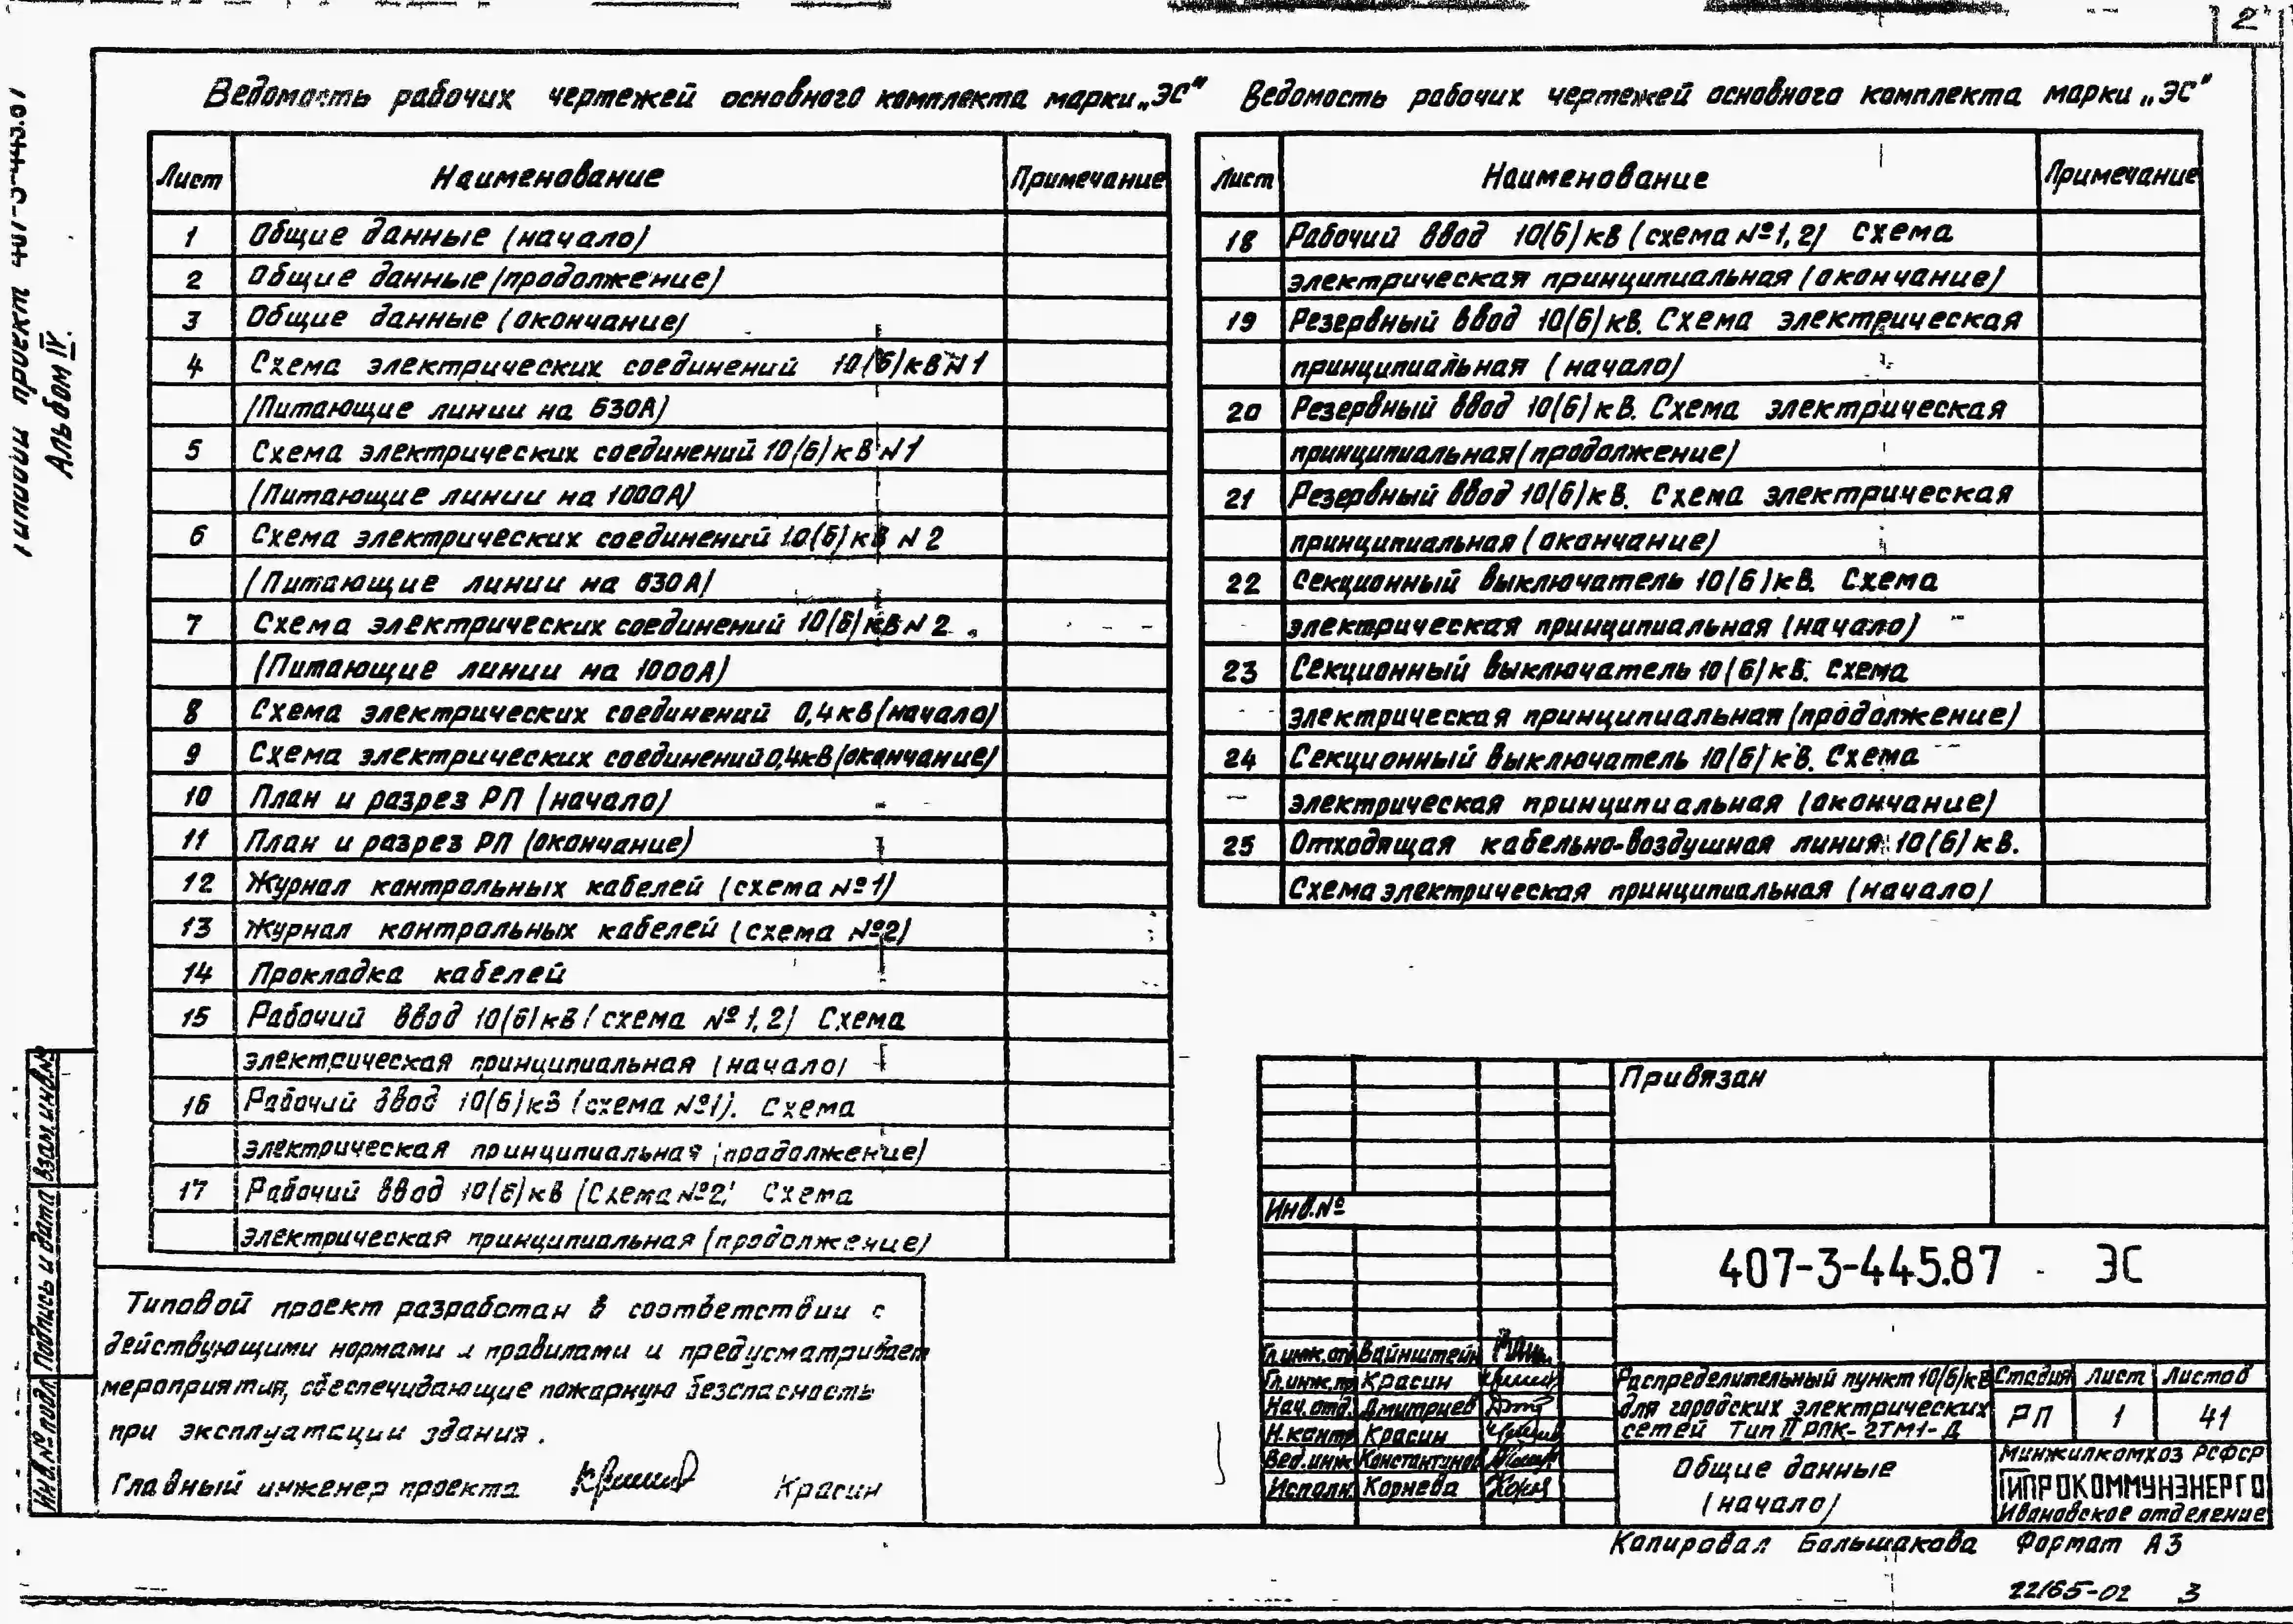 2
Типовой проект 407-3-445.87
Альбом IV.
Ведомость рабочих чертежей основного комплекта марки „ЭС"
Лист Наименование Примечание
1 Общие данные (начало)
2 Общие данные (продолжение)
3 Общие данные (окончание)
4 Схема электрических соединений 10(6)кВ N1
(Питающие линии на 630А)
5 Схема электрических соединений 10(6)кВ N1
(Питающие линии на 1000А)
6 Схема электрических соединений 10(6)кВ N2
(Питающие линии на 630А)
7 Схема электрических соединений 10(6)кВ N2
(Питающие линии на 1000А)
8 Схема электрических соединений 0,4кВ (начало)
9 Схема электрических соединений 0,4кВ (окончание)
10 План и разрез РП (начало)
11 План и разрез РП (окончание)
12 Журнал контрольных кабелей (схема №1)
13 Журнал контрольных кабелей (схема №2)
14 Прокладка кабелей
15 Рабочий ввод 10(6)кВ (схема №1,2) Схема
электрическая принципиальная (начало)
16 Рабочий ввод 10(6)кВ (схема №1). Схема
электрическая принципиальная (продолжение)
17 Рабочий ввод 10(6)кВ (Схема №2) Схема
электрическая принципиальная (продолжение)
Ведомость рабочих чертежей основного комплекта марки „ЭС"
Лист Наименование Примечание
18 Рабочий ввод 10(6)кВ (схема №1,2) Схема
электрическая принципиальная (окончание)
19 Резервный ввод 10(6)кВ. Схема электрическая
принципиальная (начало)
20 Резервный ввод 10(6)кВ. Схема электрическая
принципиальная (продолжение)
21 Резервный ввод 10(6)кВ. Схема электрическая
принципиальная (окончание)
22 Секционный выключатель 10(6)кВ. Схема
электрическая принципиальная (начало)
23 Секционный выключатель 10(6)кВ. Схема
электрическая принципиальная (продолжение)
24 Секционный выключатель 10(6)кВ. Схема
электрическая принципиальная (окончание)
25 Отходящая кабельно-воздушная линия 10(6)кВ.
Схема электрическая принципиальная (начало)
Типовой проект разработан в соответствии с
действующими нормами и правилами и предусматривает
мероприятия, обеспечивающие пожарную безопасность
при эксплуатации здания.
Главный инженер проекта Красин
Инв.№ подл. Подпись и дата Взам.инв.№
Привязан
Инв.№
407-3-445.87 ЭС
Гл.инж.отд Вайнштейн
Гл.инж.пр. Красин
Нач.отд. Дмитриев
Н.контр Красин
Вед.инж Константинов
Исполн. Корнева
Распределительный пункт 10(6)кВ
для городских электрических
сетей Тип II РПК-2ТМ1-Д
Стадия Лист Листов
РП 1 41
Общие данные
(начало)
Минжилкомхоз РСФСР
ГИПРОКОММУНЭНЕРГО
Ивановское отделение
Копировал Большакова Формат А3
22165-02 3